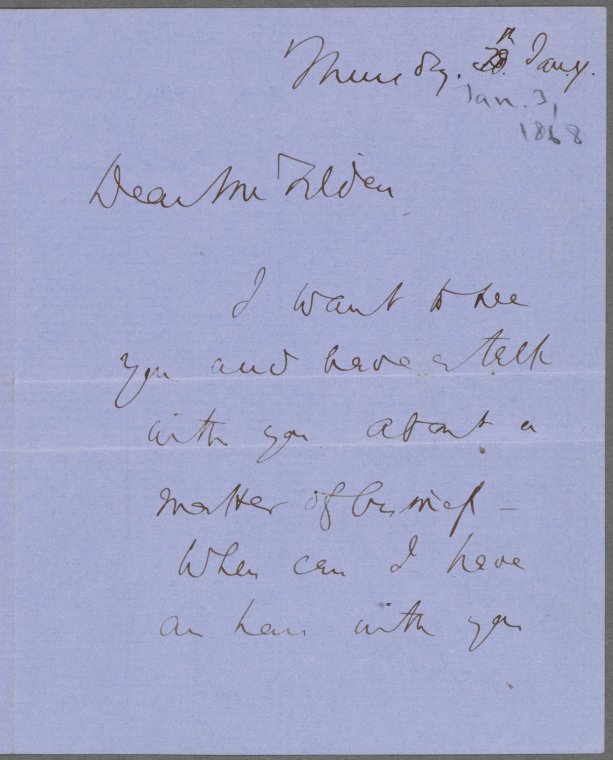 Thursday. 30th Jany.
Jan. 3,
1868
Dear Mr Tilden
I want to see
you and have a talk
with you about a
matter of business –
When can I have
an hour with you